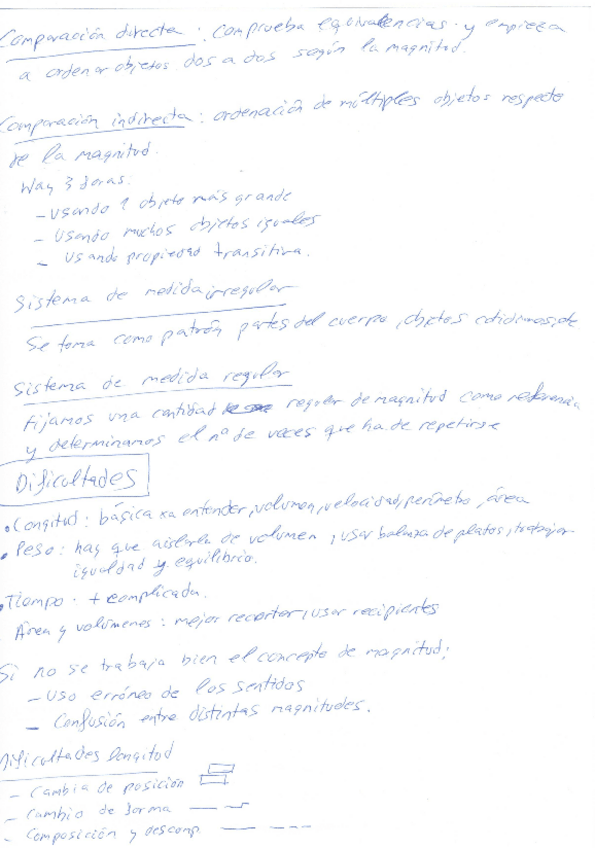 Comparación directa: comprueba equivalencias y empieza
a ordenar objetos dos a dos según la magnitud.
Comparación indirecta: ordenación de múltiples objetos respecto
de la magnitud.
Way 3 foras:
- Usando 1 objeto más grande
- Usando muchos objetos iguales
- Usando propiedad transitiva.
Sistema de medida irregular
Se toma como patrón partes del cuerpo, objetos cotidianos, etc.
Sistema de medida regular
Fijamos una cantidad regular de magnitud como referencia
y determinamos el nº de veces que ha de repetirse
Dificultades
• Longitud: básica xa entender, volumen, velocidad, perímetro, área
• Peso: hay que aislarla de volumen, usar balanza de platos, trabajar
igualdad y equilibrio.
• Tiempo: + complicada.
Área y volúmenes: mejor recortar, usar recipientes
Si no se trabaja bien el concepto de magnitud:
- Uso erróneo de los sentidos
- Confusión entre distintas magnitudes.
Dificultades longitud
- Cambia de posición
- Cambio de forma
- Composición y descomp.